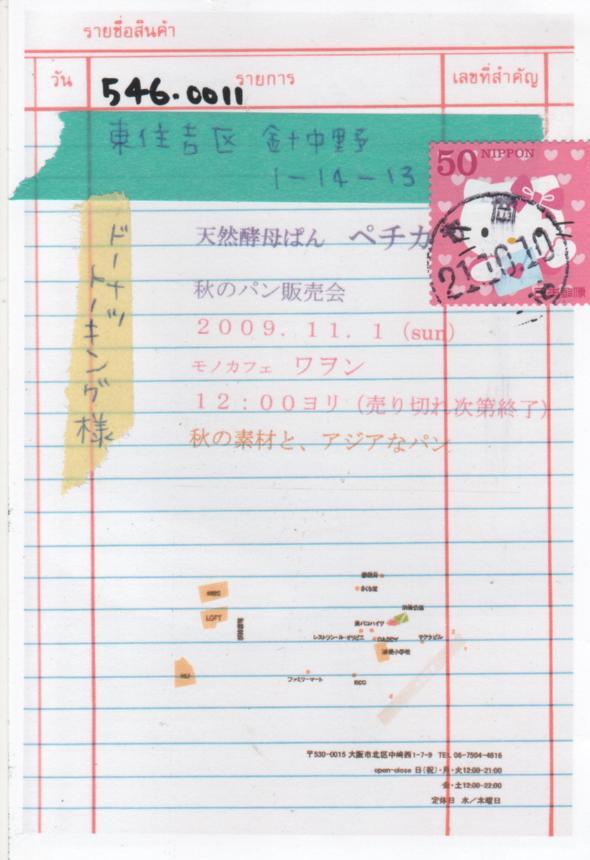 รายชื่อสินค้า
วัน
รายการ
เลขที่สำคัญ
546.0011
東住吉区 針中野
1-14-13
50 NIPPON
21.10.10
ドーナツ
トーキング様
天然酵母ぱん ペチカ
秋のパン販売会
2009.11.1 (sun)
モノカフェ ワヲン
12:00ヨリ (売り切れ次第終了)
秋の素材と、アジアなパン
LOFT
DADDY
ファミリーマート
〒530-0015 大阪市北区中崎西1-7-9 TEL 06-7504-4616
open-close 日(祝)・月・火12:00-21:00
金・土12:00-22:00
定休日 水/木曜日